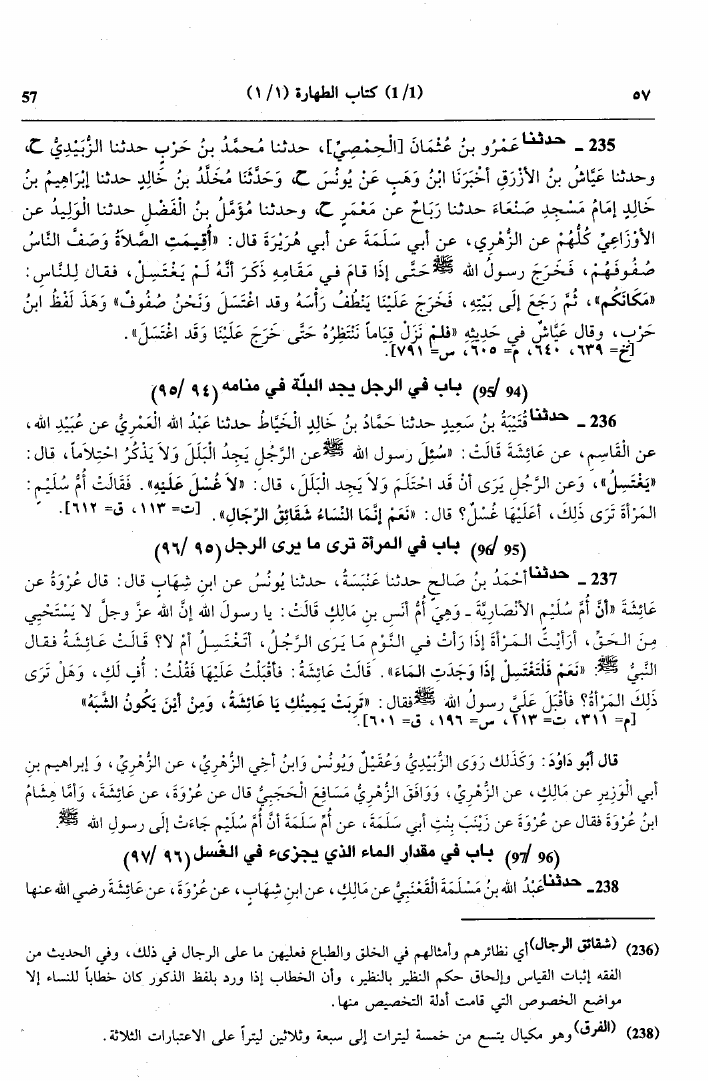 ٥٧ (1/1) كتاب الطهارة (١/١) 57
235 ـ حدثنا عَمْرُو بنُ عُثْمَانَ [الْحِمْصِيّ]، حدثنا مُحمَّدُ بنُ حَرْبٍ حدثنا الزُّبَيْدِيُّ ح،
وحدثنا عَيَّاشُ بنُ الأزْرَقِ أخْبَرَنَا ابْنُ وَهَبٍ عَنْ يُونُسَ ح، وَحَدَّثَنَا مُخَلَّدُ بنُ خَالِدٍ حدثنا إبْرَاهِيمُ بنُ
خَالِدٍ إمَامُ مَسْجِدِ صَنْعَاءَ حدثنا رَبَاحٌ عن مَعْمَرٍ ح، وحدثنا مُؤَمَّلُ بنُ الْفَضْلِ حدثنا الْوَلِيدُ عن
الأوْزَاعِيِّ كُلُّهُمْ عن الزُّهْرِي، عن أبي سَلَمَةَ عن أبي هُرَيْرَةَ قال: «أُقِيمَتِ الصَّلاَةُ وَصَفَّ النَّاسُ
صُفُوفَهُمْ، فَخَرَجَ رسولُ الله ﷺ حَتَّى إذَا قامَ في مَقَامِهِ ذَكَرَ أنَّهُ لَمْ يَغْتَسِلْ، فقال لِلنَّاسِ:
«مَكَانَكُم»، ثُمَّ رَجَعَ إلَى بَيْتِهِ، فَخَرَجَ عَلَيْنَا يَنْطُفُ رَأْسُهُ وقد اغْتَسَلَ وَنَحْنُ صُفُوفٌ» وَهَذَ لَفْظُ ابنُ
حَرْبٍ، وقال عَيَّاشٌ في حَدِيثِهِ «فلمْ نَزَلْ قِيَاماً نَنْتَظِرُهُ حَتَّى خَرَجَ عَلَيْنَا وَقَد اغْتَسَلَ».
[خ= ٦٣٩، ٦٤٠، م= ٦٠٥، س= ٧٩١].
(94 /95) باب في الرجل يجد البلّة في منامه (٩٤ /٩٥)
236 ـ حدثنا قُتَيْبَةُ بنُ سَعِيدٍ حدثنا حَمَّادُ بنُ خَالِدٍ الْخَيَّاطُ حدثنا عَبْدُ الله الْعمَرِيُّ عن عُبَيْدِ الله،
عن الْقَاسِمِ، عن عَائِشَةَ قالَتْ: «سُئِلَ رسول الله ﷺ عن الرَّجُلِ يَجِدُ الْبَلَلَ وَلاَ يَذْكُرُ احْتِلاَماً، قال:
«يَغْتَسِلُ»، وَعن الرَّجُلِ يَرَى أنْ قَد احْتَلَمَ وَلاَ يَجِد الْبَلَلَ، قال: «لاَ غُسْلَ عَلَيْهِ». فَقَالَت أُمُّ سُلَيْمٍ:
المَرْأةُ تَرَى ذَلِكَ، أعَلَيْهَا غُسْلٌ؟ قال: «نَعَمْ إنَّمَا النِّسَاءُ شَقَائِقُ الرِّجَالِ». [ت= ١١٣، ق= ٦١٢].
(95 /96) باب في المرأة ترى ما يرى الرجل (٩٥ /٩٦)
237 ـ حدثنا أحْمَدُ بنُ صَالِحٍ حدثنا عَنْبَسَةُ، حدثنا يُونُسُ عن ابنِ شِهَابٍ قال: قال عُرْوَةُ عن
عَائِشَةَ «أنَّ أُمَّ سُلَيْمٍ الأنْصَارِيَّةَ ـ وَهِيَ أُمُّ أنَسِ بنِ مَالِكٍ قَالَتْ: يا رسولَ الله إنَّ الله عزَّ وجلَّ لا يَسْتَحْيِي
مِنَ الحَقِّ، أرَأيْتَ المَرْأةَ إذَا رَأتْ في النَّوْمِ مَا يَرَى الرَّجُلُ، أتَغْتَسِلُ أمْ لا؟ قالَتْ عَائِشَةُ فقال
النَّبيُّ ﷺ: «نَعَمْ فَلْتَغْتَسِلْ إذَا وَجَدَتِ المَاءَ». قَالَتْ عَائِشَةُ: فأقْبَلْتُ عَلَيْهَا فَقُلْتُ: أُفٍ لَكِ، وَهَلْ تَرَى
ذَلِكَ المَرْأةُ؟ فأقْبَلَ عَلَيَّ رسولُ الله ﷺ فقال: «تَرِبَتْ يَمِينُكِ يَا عَائِشَةُ، وَمِنْ أيْنَ يَكُونُ الشَّبَهُ»
[م= ٣١١، ت= ٢١٣، س= ١٩٦، ق= ٦٠١].
قال أبُو دَاوُدَ: وَكَذلك رَوَى الزُّبَيْدِيُّ وَعُقَيْلٌ وَيُونُسُ وَابنُ أخِي الزُّهْرِيِّ، عن الزُّهْرِيِّ، وَإبراهيم بنِ
أبي الْوَزِيرِ عن مَالِكٍ، عن الزُّهْرِيِّ، وَوَافَقَ الزُّهْرِيُّ مَسَافِعَ الْحَجَبِيُّ قال عن عُرْوَةَ، عن عَائِشَةَ، وَأمَّا هِشَامُ
ابنُ عُرْوَةَ فقال عن عُرْوَةَ عن زَيْنَبَ بِنْتِ أبي سَلَمَةَ، عن أُمِّ سَلَمَةَ أنَّ أُمَّ سُلَيْمٍ جَاءَتْ إلَى رسولِ الله ﷺ.
(96 /97) باب في مقدار الماء الذي يجزىء في الغسل (٩٦ /٩٧)
238ـ حدثنا عَبْدُ الله بنُ مَسْلَمَةَ الْقَعْنَبِيُّ عن مَالِكٍ، عن ابنِ شِهَابٍ، عن عُرْوَةَ، عن عَائِشَةَ رضي الله عنها
(236) (شقائق الرجال) أي نظائرهم وأمثالهم في الخلق والطباع فعليهن ما على الرجال في ذلك، وفي الحديث من
الفقه إثبات القياس وإلحاق حكم النظير بالنظير، وأن الخطاب إذا ورد بلفظ الذكور كان خطاباً للنساء إلا
مواضع الخصوص التي قامت أدلة التخصيص منها.
(238) (الفرق) وهو مكيال يتسع من خمسة ليترات إلى سبعة وثلاثين ليتراً على الاعتبارات الثلاثة.